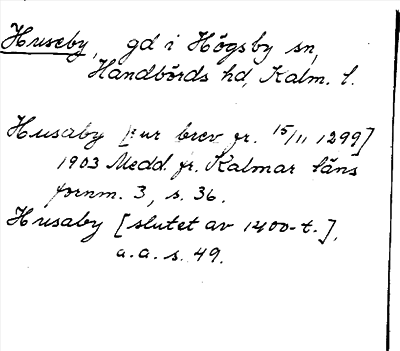 Huseby, gd i Högsby sn,
Handbörds hd, Kalm. l.
Husaby [ur brev fr. 15/11 1299]
1903 Medd. fr. Kalmar läns
fornm. 3, s. 36.
Husaby [slutet av 1400-t.],
a.a. s. 49.